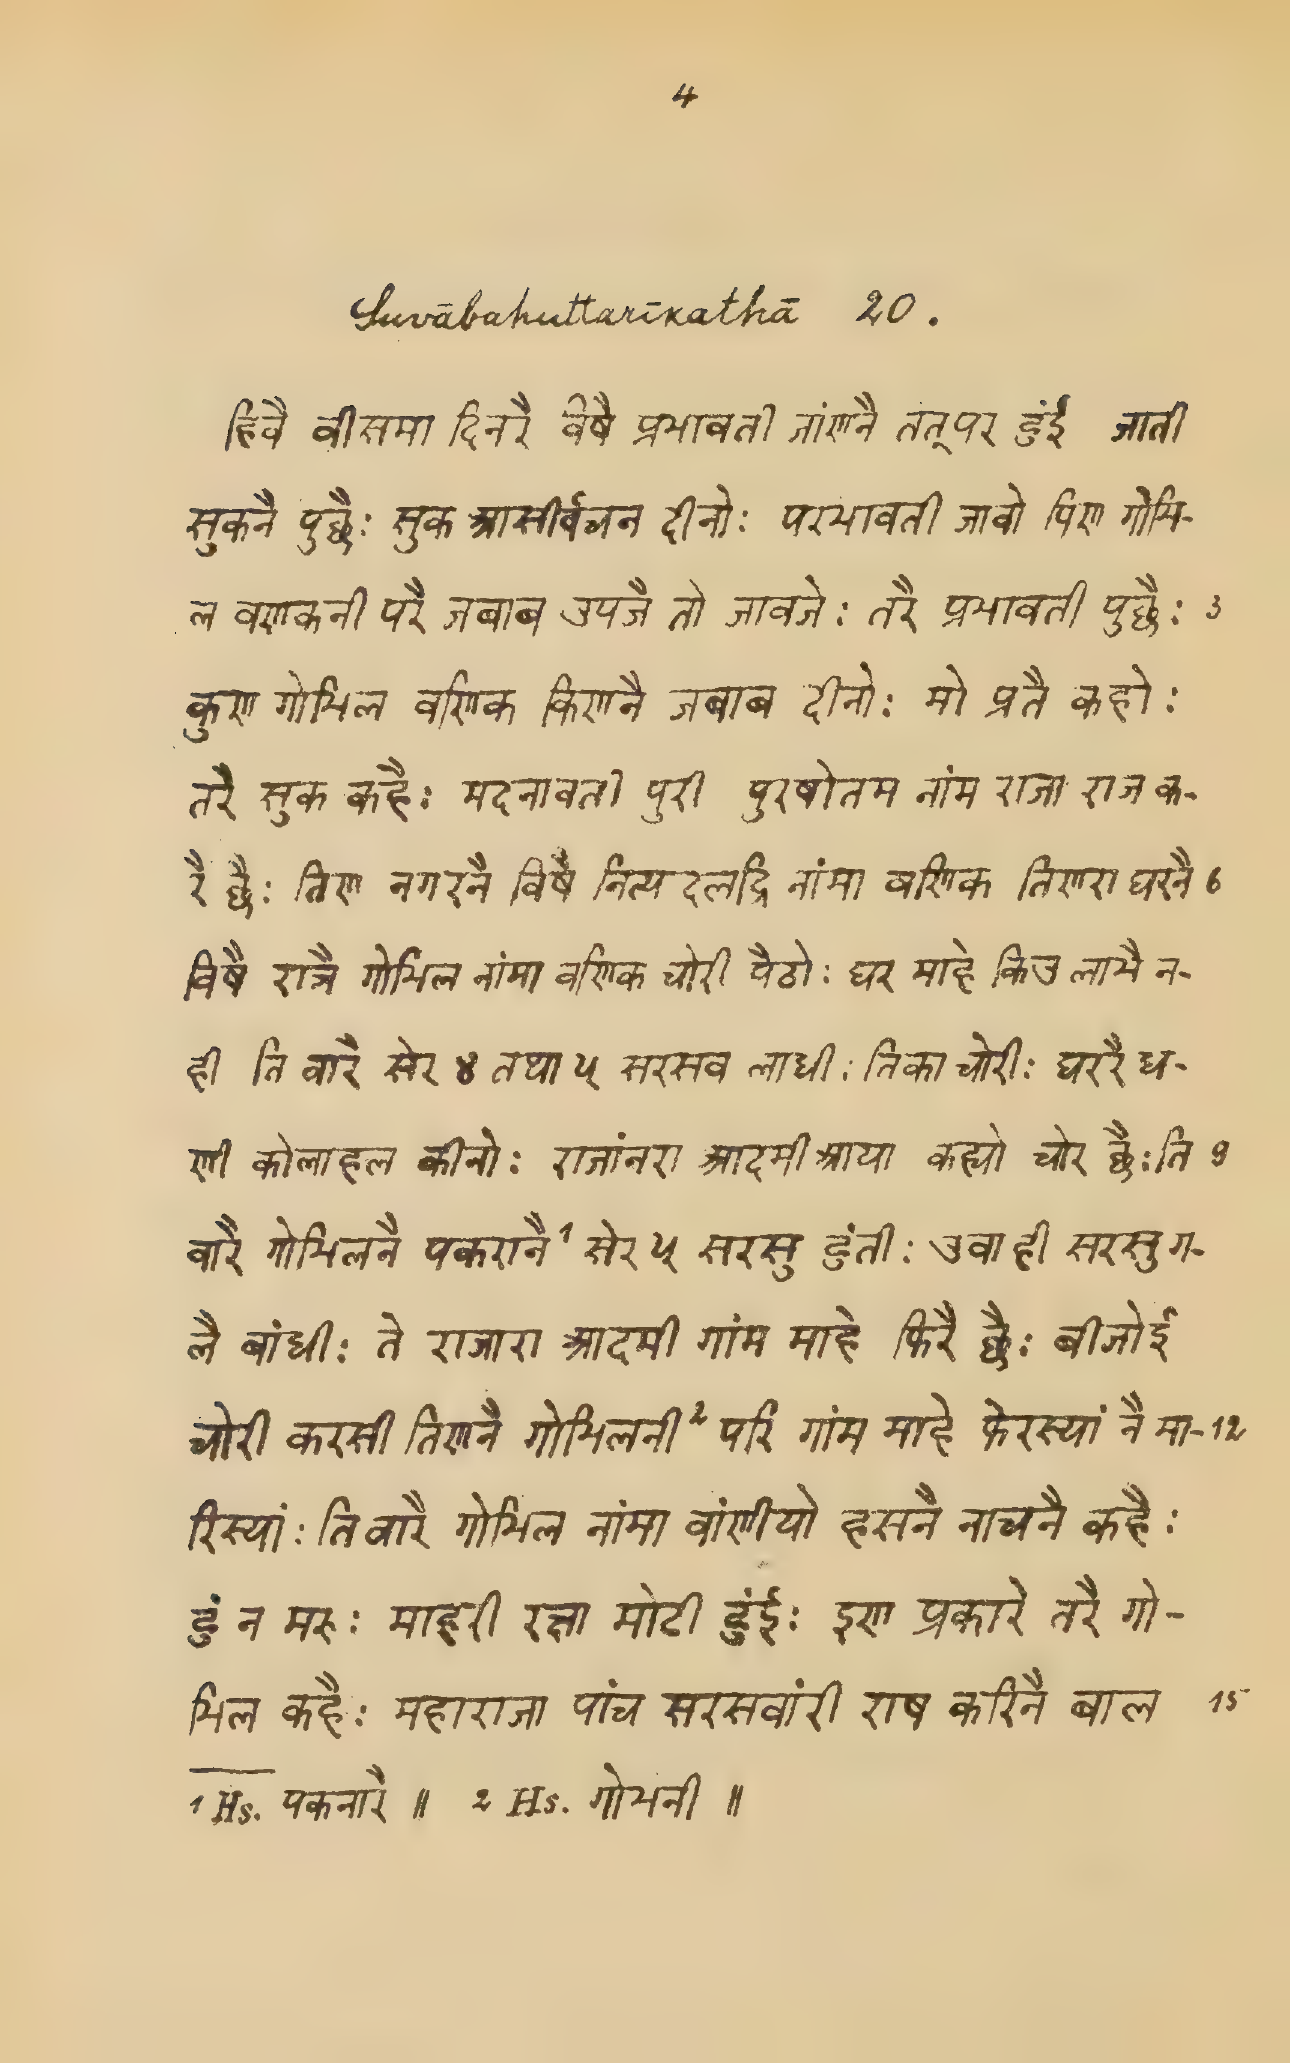 4
Suvābahuttarīkathā 20.
हिवै वीसमा दिनरै विषै प्रभावती जांणनै तत्पर हुंई जाती
सुकनै पुछै: सुक आसीर्वचन दीनो: परभावती जावो पिण गोभि-
ल वणकनी परै जबाब उपजै तो जावजे: तरै प्रभावती पुछै: 3
कुण गोभिल वणिक किणनै जबाब दीनो: मो प्रतै कहो:
तरै सुक कहै: मदनावती पुरी पुरषोतम नांम राजा राज क-
रै छै: तिण नगरनै विषै नित्यदलद्रि नांमा वणिक तिणरा घरनै 6
विषै रात्रै गोभिल नांमा वणिक चोरी पैठो: घर माहे किउ लाभै न-
ही ति वारै सेर ४ तथा ५ सरसव लाधी: तिका चोरी: घररै ध-
णी कोलाहल कीनो: राजांनरा आदमी आया कह्यो चोर छै: ति 9
वारै गोभिलनै पकरानै¹ सेर ५ सरसु हुंती: उवा ही सरसु ग-
लै बांधी: ते राजारा आदमी गांम माहे फिरै छै: बीजोई
चोरी करसी तिणनै गोभिलनी² परि गांम माहे फेरस्यां नै मा- 12
रिस्यां: ति वारै गोभिल नांमा वांणीयो हसनै नाचनै कहै:
हुं न मरु: माहरी रक्षा मोटी हुंई: इण प्रकारे तरै गो-
भिल कहै: महाराजा पांच सरसवांरी राष करिनै बाल 15
1 Hs. पकनारै ॥ 2 Hs. गोभनी ॥